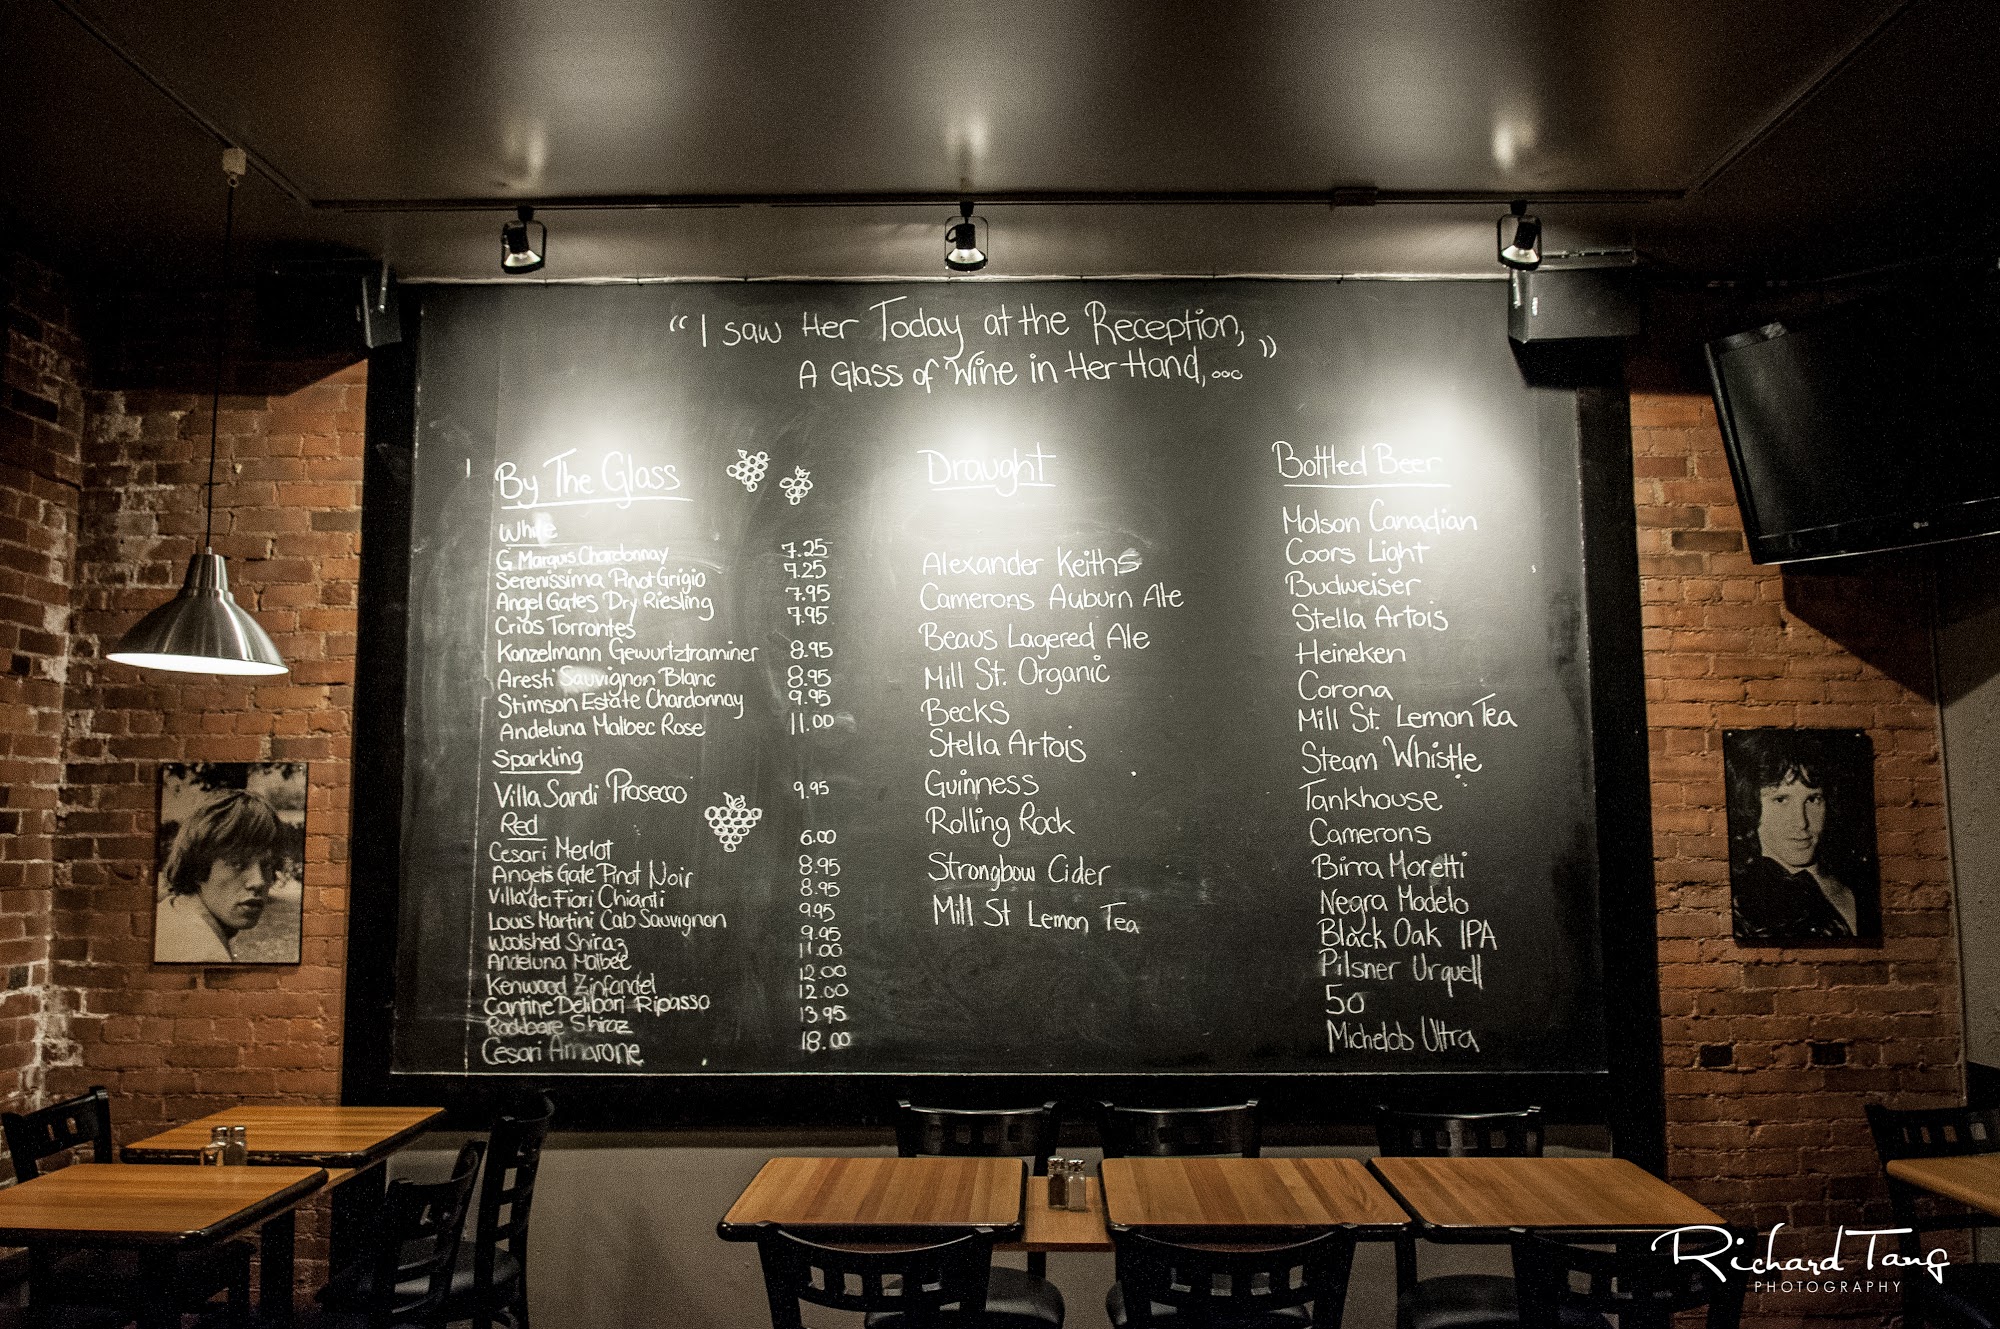 “I saw Her Today at the Reception,
A Glass of Wine in Her Hand,...”
By The Glass
White
G Marquis Chardonnay 7.25
Serenissima Pinot Grigio 7.25
Angel Gates Dry Riesling 7.95
Crios Torrontes 7.95
Konzelmann Gewurtztraminer 8.95
Aresti Sauvignon Blanc 8.95
Stimson Estate Chardonnay 9.95
Andeluna Malbec Rose 11.00
Sparkling
Villa Sandi Prosecco 9.95
Red
Cesari Merlot 6.00
Angels Gate Pinot Noir 8.95
Villa dei Fiori Chianti 8.95
Louis Martini Cab Sauvignon 9.95
Woolshed Shiraz 9.95
Andeluna Malbec 11.00
Kenwood Zinfandel 12.00
Cantine Delibori Ripasso 12.00
Rockbare Shiraz 13.95
Cesari Amarone 18.00
Draught
Alexander Keiths
Camerons Auburn Ale
Beaus Lagered Ale
Mill St. Organic
Becks
Stella Artois
Guinness
Rolling Rock
Strongbow Cider
Mill St Lemon Tea
Bottled Beer
Molson Canadian
Coors Light
Budweiser
Stella Artois
Heineken
Corona
Mill St. Lemon Tea
Steam Whistle
Tankhouse
Camerons
Birra Moretti
Negra Modelo
Black Oak IPA
Pilsner Urquell
50
Michelob Ultra
LG
Richard Tang
PHOTOGRAPHY